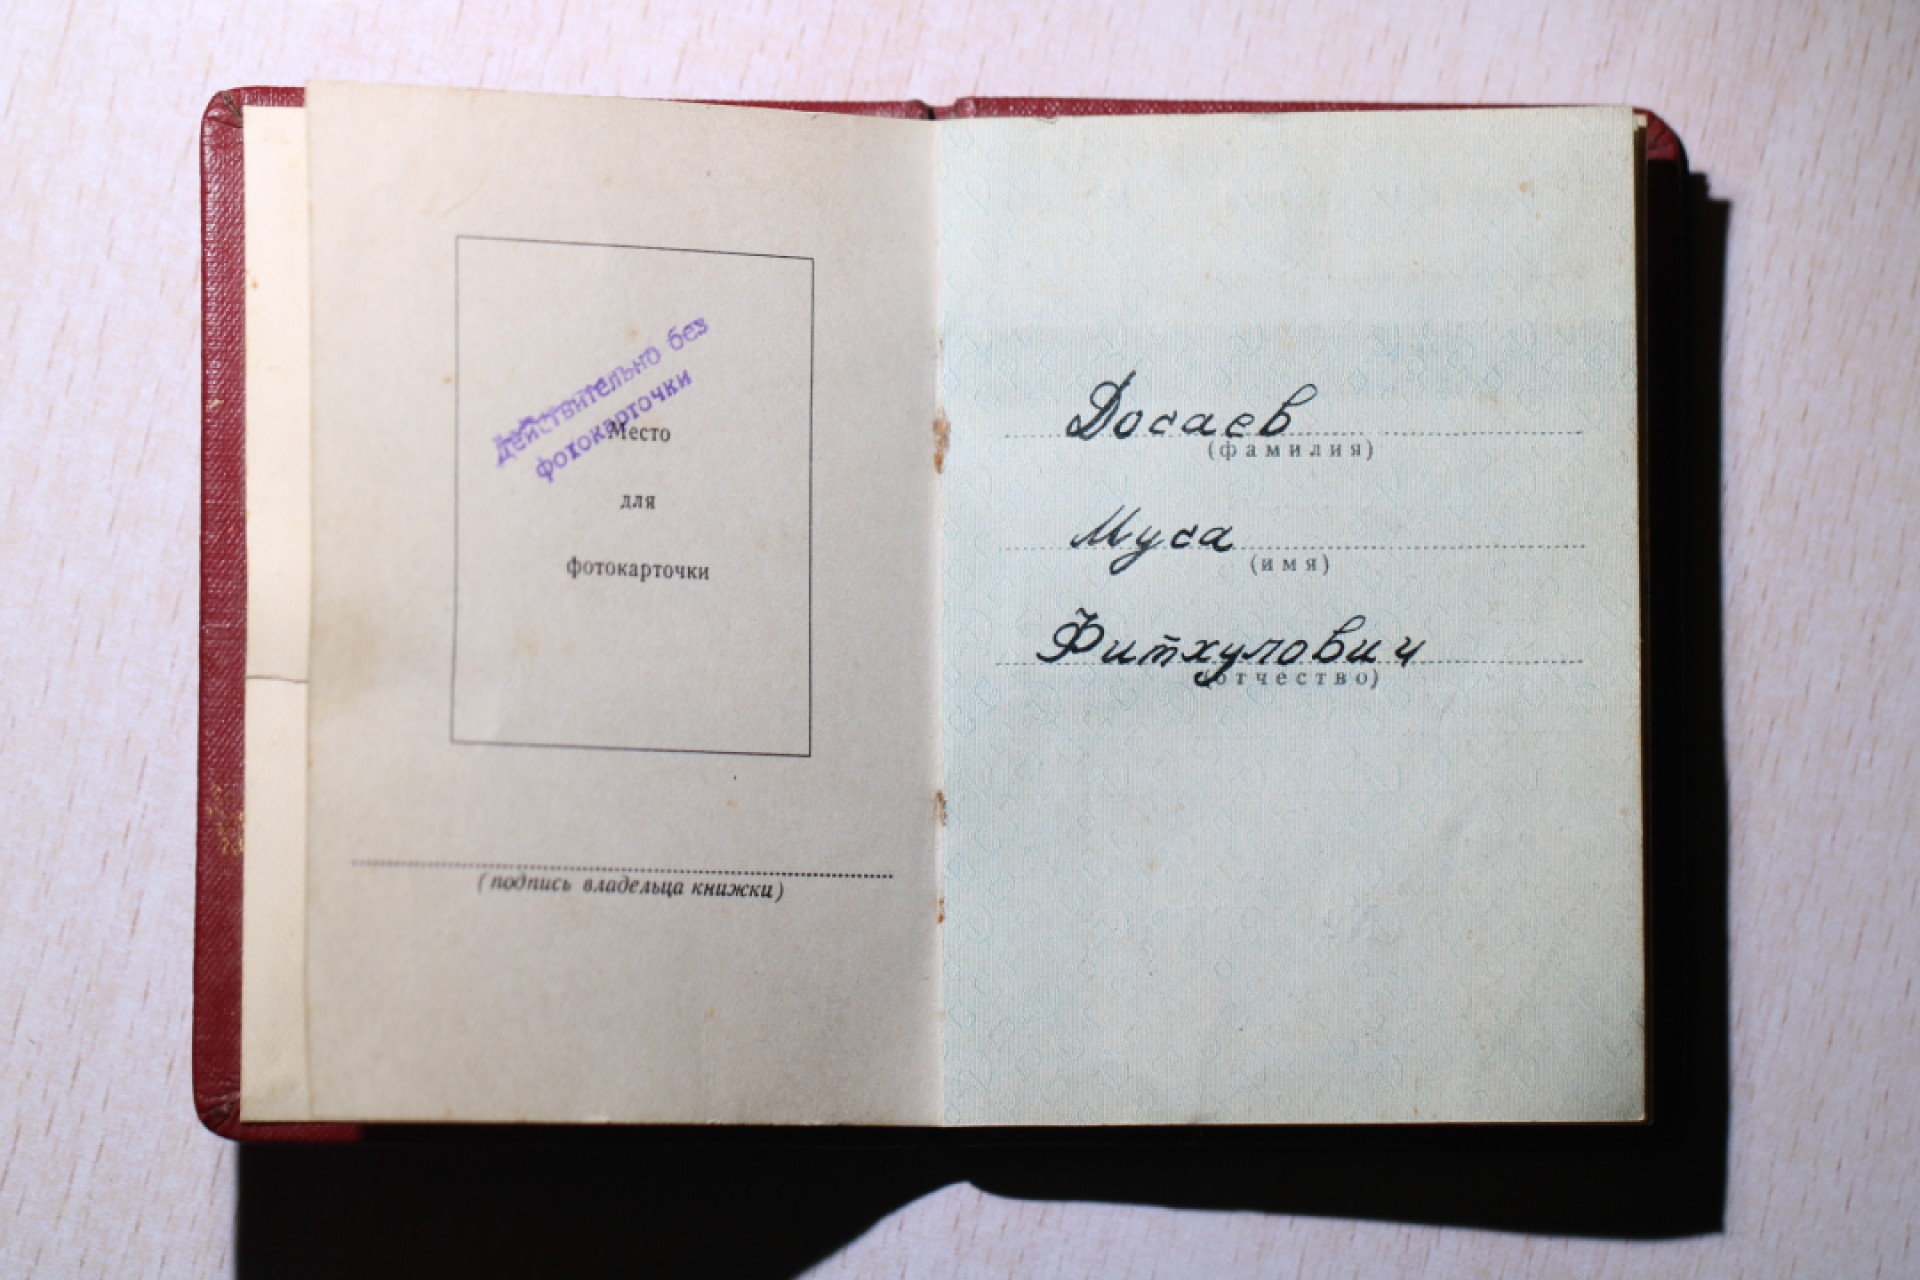 Действительно без
фотокарточки
Место
для
фотокарточки
(подпись владельца книжки)
Досаев
(фамилия)
Муса
(имя)
Фитхулович
(отчество)